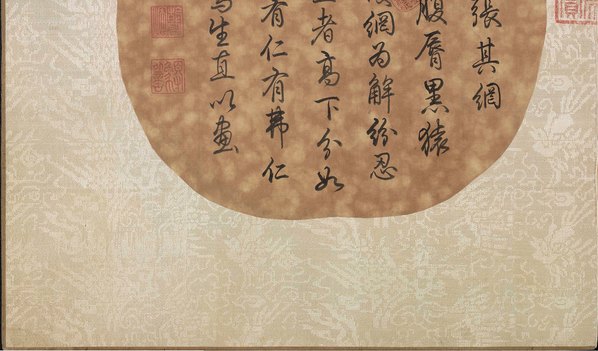 張其網
腹脣黑猿
網為解紛忍
者高下分如
有仁有仁
生直以畫